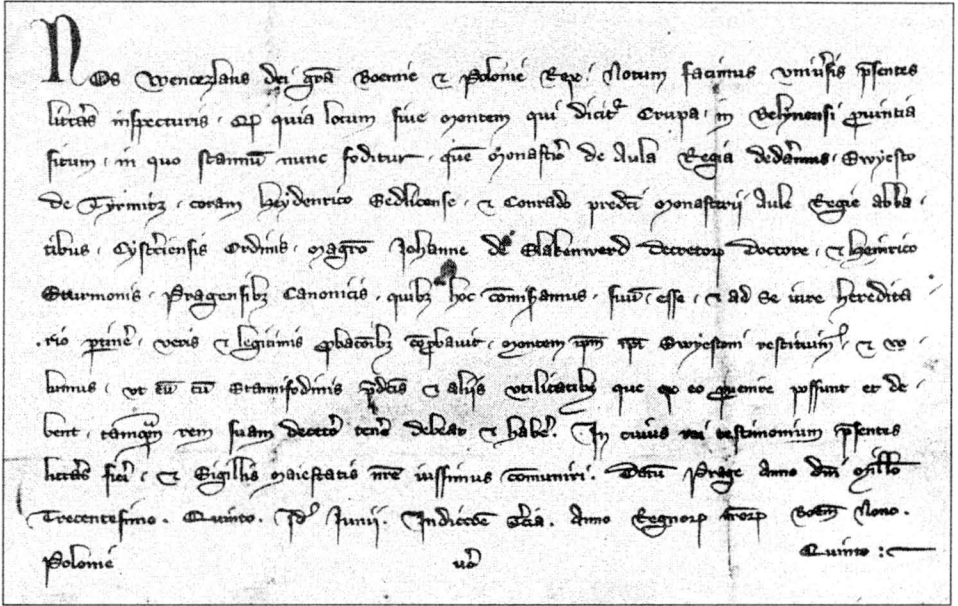 Nos Wencezlaus dei gr̄a Boemie ⁊ Polonie Rex. Notum facimus univ̕sis p̄sentes
litt̕as inspecturis. Qp̄ quia locum sive Montem qui dicit᷑ Crupa. in Belynensi ꝓvintia
situm. in quo stannū nunc foditur. quē Monast̕io de Aula Regia dedam̄us. Swyesto
de Tyrmitz. coram Heydenrico Sedlicense. ⁊ Conrado predc̄i Monasterii Aule Regie abba
tibus. Cystercien̄sis Ordinis. Magr̄o Johanne de Slakenwerd decretoꝝ doctore. ⁊ Heinrico
Sturmonis. Pragensibꝫ Canonicis. quibꝫ hoc com̄iseramus. suū. esse. ⁊ ad se iure heredita
rio ꝑtinē. veris ⁊ legitimis ꝓbac̄oibꝫ cōꝓbavit. Montem ip̄m ip̄i Swyestoni restituim᷒. ⁊ vo
lumus. ut eū cū Stannifodinis p̄dc̄is ⁊ aliis utilitatibꝫ que ex eo ꝓvenire possunt et de
bent. tamq̄m rem suam decet̕o tenē debeat ⁊ habē. In cuius rei testimonium p̄sentes
litt̕as fieri. ⁊ Sigillis Maiestatis nr̄e iussimus com̄uniri. Datū Prage Anno dn̄i Mill̄o
Trecentesimo. Quinto. Id᷒ Junii. Indicc̄oe t̕cia. Anno Regnoꝝ nr̄oꝝ Boem̄ Nono.
Polonie v̕o Quinto :